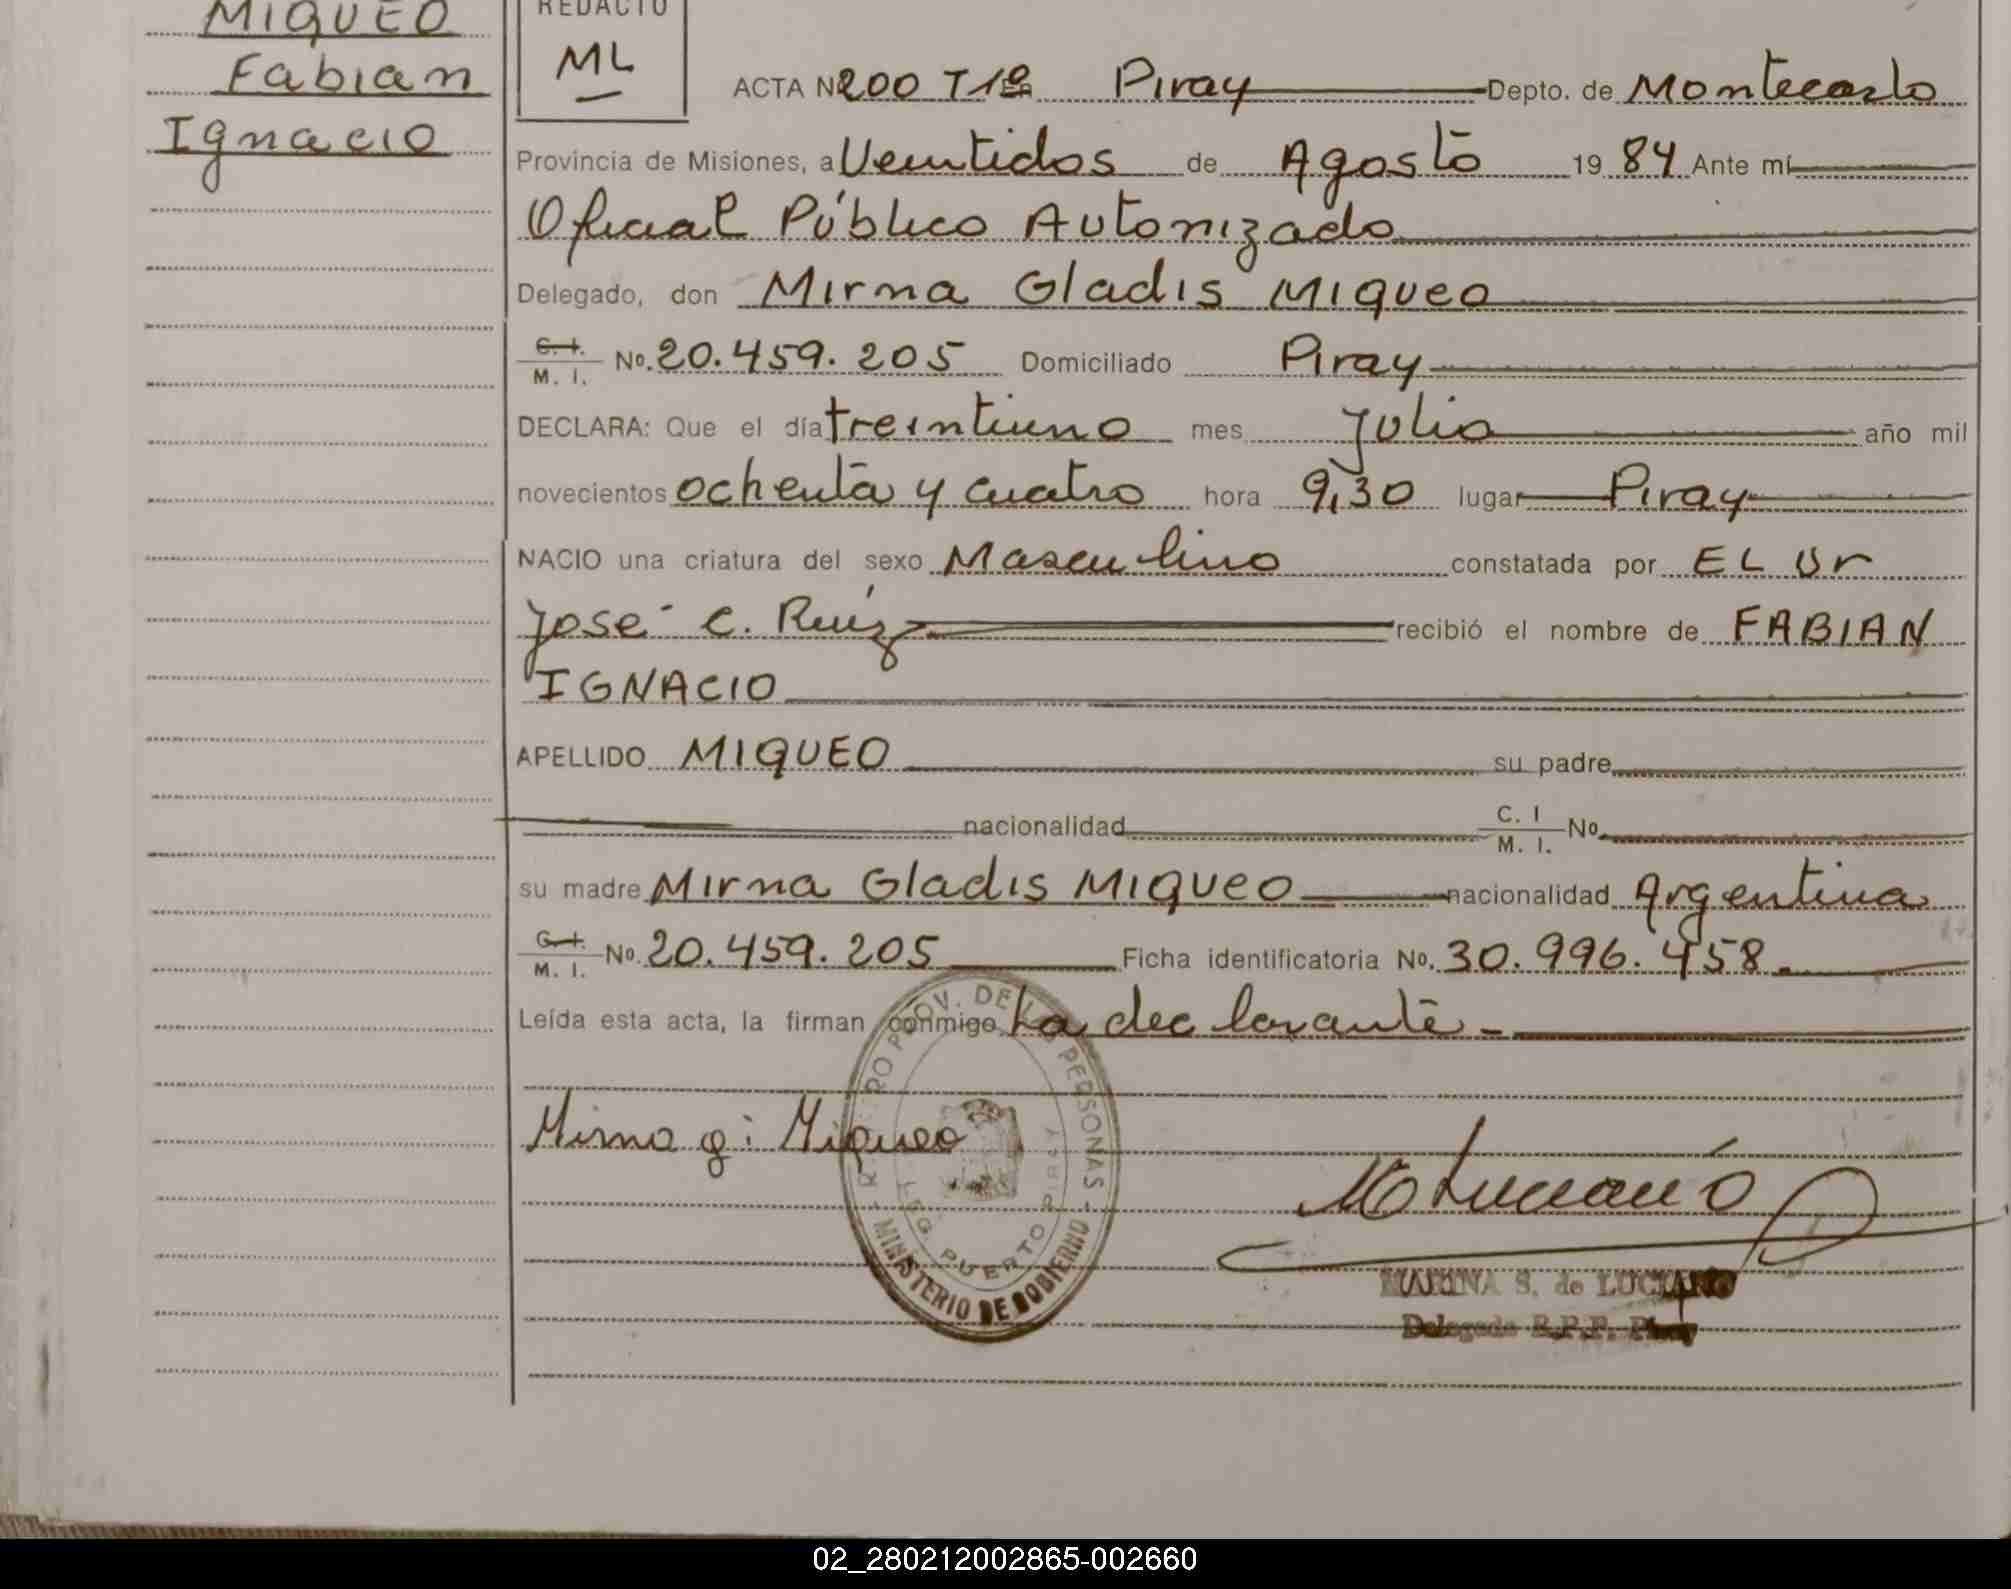 MIQUEO
Fabian
Ignacio
REDACTO
ML
ACTA Nº 200 T1º Piray Depto. de Montecarlo
Provincia de Misiones, a Veintidos de Agosto 1984 Ante mí
Oficial Público Autorizado
Delegado, don Mirna Gladis MIQUEO
C. I. / M. I. No. 20.459.205 Domiciliado Piray
DECLARA: Que el día treintiuno mes Julio año mil
novecientos ochenta y cuatro hora 9,30 lugar Piray
NACIO una criatura del sexo Masculino constatada por EL Dr
José C. Ruíz recibió el nombre de FABIAN
IGNACIO
APELLIDO MIQUEO su padre
nacionalidad C. I / M. I. No
su madre Mirna Gladis MIQUEO nacionalidad Argentina
C. I. / M. I. No. 20.459.205 Ficha identificatoria No. 30.996.458
Leída esta acta, la firman conmigo La declarante -
Mirna g: Miqueo
REGISTRO PROV. DE LAS PERSONAS - MINISTERIO DE GOBIERNO -
DEG. PUERTO PIRAY
M Luciano
MARINA S. de LUCIANO
Delegada R.P.P. Piray
02_280212002865-002660